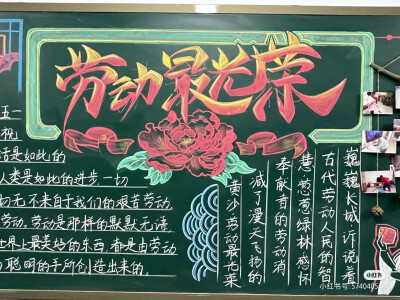 劳动最光荣
五一
祝
活是如此的
人类是如此的进步一切
切无不来自于我们的艰苦劳动
劳动,劳动是那样的默默无语
世界上最美好的东西 都是由劳动
聪明的手所创造出来的.
巍巍长城 诉说着
古代劳动人民的智
慧 葱葱绿林 感怀
奉献者的劳动消
减了漫天飞扬的
黄沙劳动最光荣
小红书